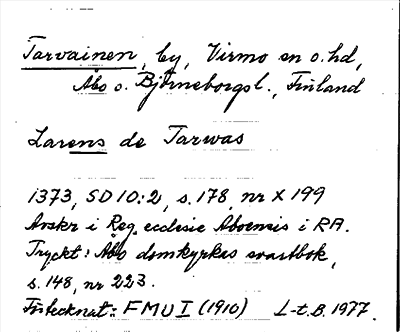 Tarvainen, by, Virmo sn o. hd,
Åbo o. Björneborgs l., Finland
Larens de Tarwas
1373, SD 10:2, s. 178, nr X 199
Avskr i Reg. ecclesie Aboensis i RA.
Tryckt: Åbo domkyrkas svartbok,
s. 148, nr 223.
Förtecknat: FMU I (1910) L-t. B. 1977.